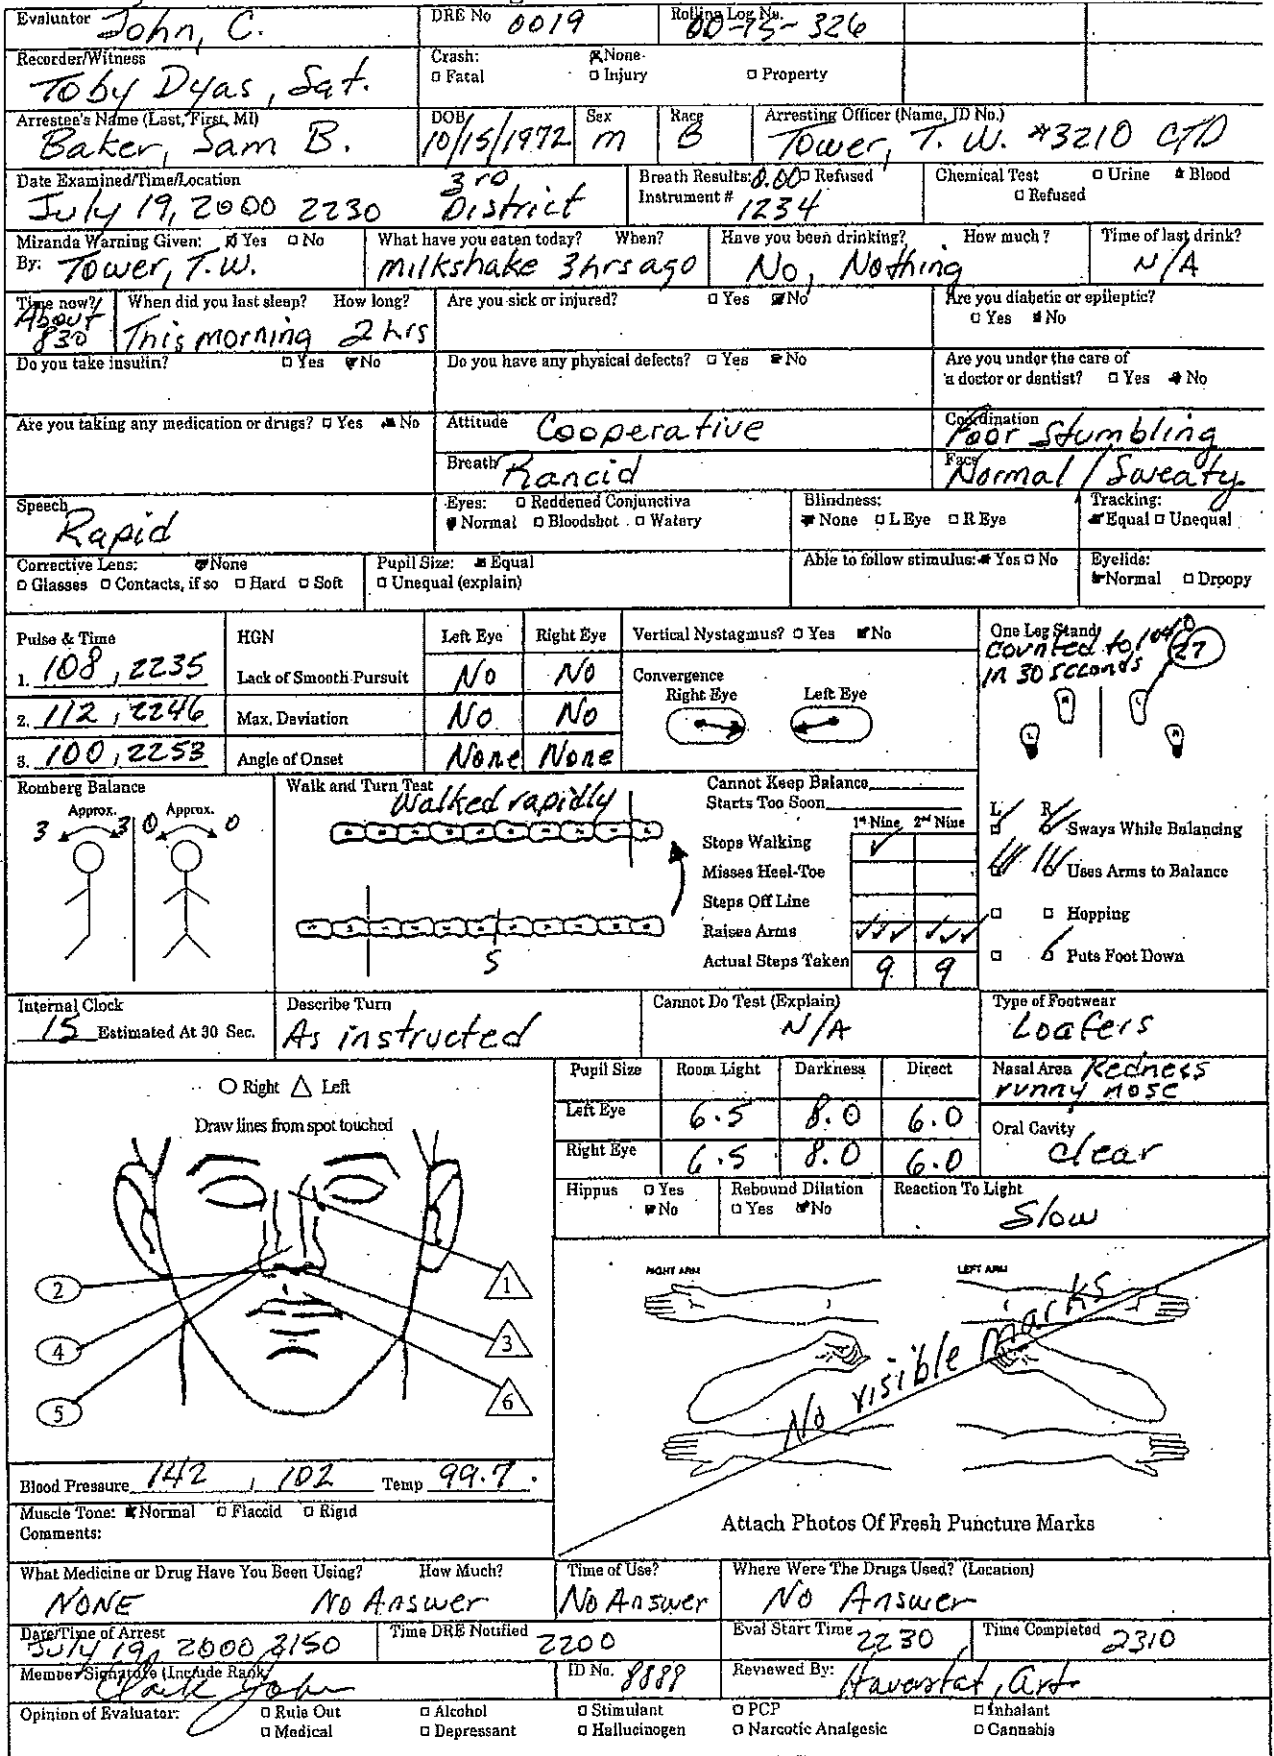 Evaluator John, C. DRE No 0019 Rolling Log No. 00-75-326
Recorder/Witness Toby Dyas, Sgt. Crash: None
□ Fatal □ Injury □ Property
Arrestee's Name (Last, First, MI) Baker, Sam B. DOB 10/15/1972 Sex M Race B Arresting Officer (Name, ID No.) Tower, T. W. #3210 CTD
Date Examined/Time/Location July 19, 2000 2230 3rd District Breath Results: 0.00 □ Refused Instrument # 1234 Chemical Test □ Urine Blood □ Refused
Miranda Warning Given: Yes □ No By: Tower, T.W. What have you eaten today? When? Milkshake 3hrs ago Have you been drinking? How much? No, Nothing Time of last drink? N/A
Time now? About 830 When did you last sleep? How long? This morning 2 hrs Are you sick or injured? □ Yes No Are you diabetic or epileptic? □ Yes No
Do you take insulin? □ Yes No Do you have any physical defects? □ Yes No Are you under the care of a doctor or dentist? □ Yes No
Are you taking any medication or drugs? □ Yes No Attitude Cooperative Coordination Poor Stumbling
Breath Rancid Face Normal / Sweaty
Speech Rapid Eyes: □ Reddened Conjunctiva Normal □ Bloodshot □ Watery Blindness: None □ L Eye □ R Eye Tracking: Equal □ Unequal
Corrective Lens: None □ Glasses □ Contacts, if so □ Hard □ Soft Pupil Size: Equal □ Unequal (explain) Able to follow stimulus: Yes □ No Eyelids: Normal □ Droopy
Pulse & Time HGN Left Eye Right Eye Vertical Nystagmus? □ Yes No One Leg Stand counted to in 30 seconds 27
1. 108, 2235 Lack of Smooth Pursuit No No Convergence Right Eye Left Eye
2. 112, 2246 Max. Deviation No No
3. 100, 2253 Angle of Onset None None
L R R L
Romberg Balance Approx. Approx. 3 3 0 0
Walk and Turn Test Walked rapidly
S
Cannot Keep Balance
Starts Too Soon
1st Nine 2nd Nine
Stops Walking
Misses Heel-Toe
Steps Off Line
Raises Arms
Actual Steps Taken 9 9
L R
Sways While Balancing
Uses Arms to Balance
□ □ Hopping
□ Puts Foot Down
Internal Clock 15 Estimated At 30 Sec. Describe Turn As instructed Cannot Do Test (Explain) N/A Type of Footwear Loafers
○ Right △ Left
Draw lines from spot touched
2 4 5 1 3 6
Pupil Size Room Light Darkness Direct Nasal Area Redness runny nose
Left Eye 6.5 8.0 6.0 Oral Cavity clear
Right Eye 6.5 8.0 6.0
Hippus □ Yes No Rebound Dilation □ Yes No Reaction To Light Slow
RIGHT ARM LEFT ARM
No visible marks
Attach Photos Of Fresh Puncture Marks
Blood Pressure 142, 102 Temp 99.7
Muscle Tone: Normal □ Flaccid □ Rigid
Comments:
What Medicine or Drug Have You Been Using? How Much? NONE No Answer Time of Use? No Answer Where Were The Drugs Used? (Location) No Answer
Date/Time of Arrest July 19, 2000 2150 Time DRE Notified 2200 Eval Start Time 2230 Time Completed 2310
Member Signature (Include Rank) Clark John ID No. 8888 Reviewed By:
Opinion of Evaluator: □ Rule Out □ Alcohol □ Stimulant □ PCP □ Inhalant
□ Medical □ Depressant □ Hallucinogen □ Narcotic Analgesic □ Cannabis